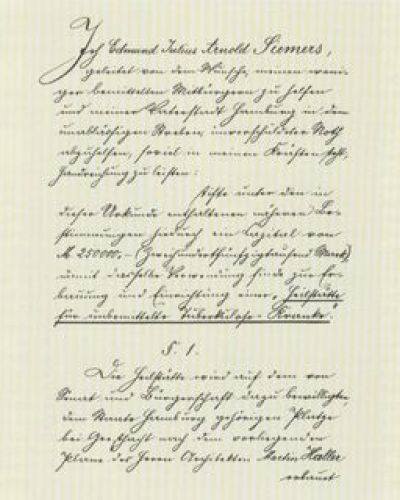 Ich Edmund Julius Arnold Siemers,
geleitet von dem Wunsche, meinen weni-
ger bemittelten Mitbürgern zu helfen
und meiner Vaterstadt Hamburg in dem
unablässigen Streben, unverschuldeter Noth
abzuhelfen, soviel in meinen Kräften steht,
Handreichung zu leisten:
stifte unter den in
dieser Urkunde enthaltenen näheren Be-
stimmungen hiedurch ein Capital von
M 250000,- (Zweihundertfünfzigtausend Mark)
damit dasselbe Verwendung finde zur Er-
bauung und Einrichtung einer „Heilstätte
für unbemittelte Tuberkulose-Kranke".
§. 1.
Die Heilstätte wird auf dem von
Senat und Bürgerschaft dazu bewilligten
dem Staate Hamburg gehörigen Platze
bei Geesthacht nach dem vorliegenden
Plane des Herrn Architekten Martin Haller
erbaut